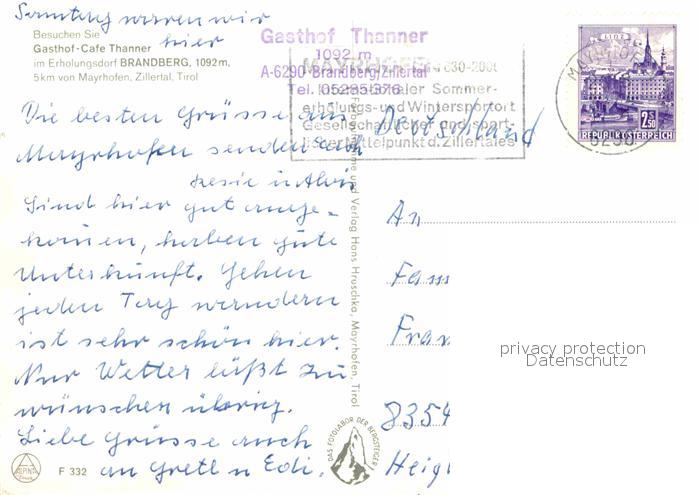 Sonntag waren wir
hier
Besuchen Sie
Gasthof-Cafe Thanner
im Erholungsdorf BRANDBERG, 1092 m,
5 km von Mayrhofen, Zillertal, Tirol
Gasthof Thanner
1092 m
A-6290 Brandberg/Zillertal
Tel. 05285-376
MAYRHOFEN 630-2001
Internationaler Sommer-
erholungs- und Wintersportort
Gesellschaftlicher und sport-
licher Mittelpunkt d. Zillertales
LINZ
REPUBLIK ÖSTERREICH
2.50
MAYRHOFEN
6290
Die besten Grüsse aus
Mayrhofen senden Euch
Resie u. Alois
Sind hier gut ange-
kommen, haben gute
Unterkunft. Gehen
jeden Tag wandern
ist sehr schön hier.
Nur Wetter läßt zu
wünschen übrig.
Liebe Grüsse auch
an Gretl u Edi.
Deutschland
An
Fam
Fran
8354
Heig
und Verlag Hans Hruschka, Mayrhofen, Tirol
DAS FOTOLABOR DER BERGSTEIGER
ALPINA
F 332
privacy protection
Datenschutz